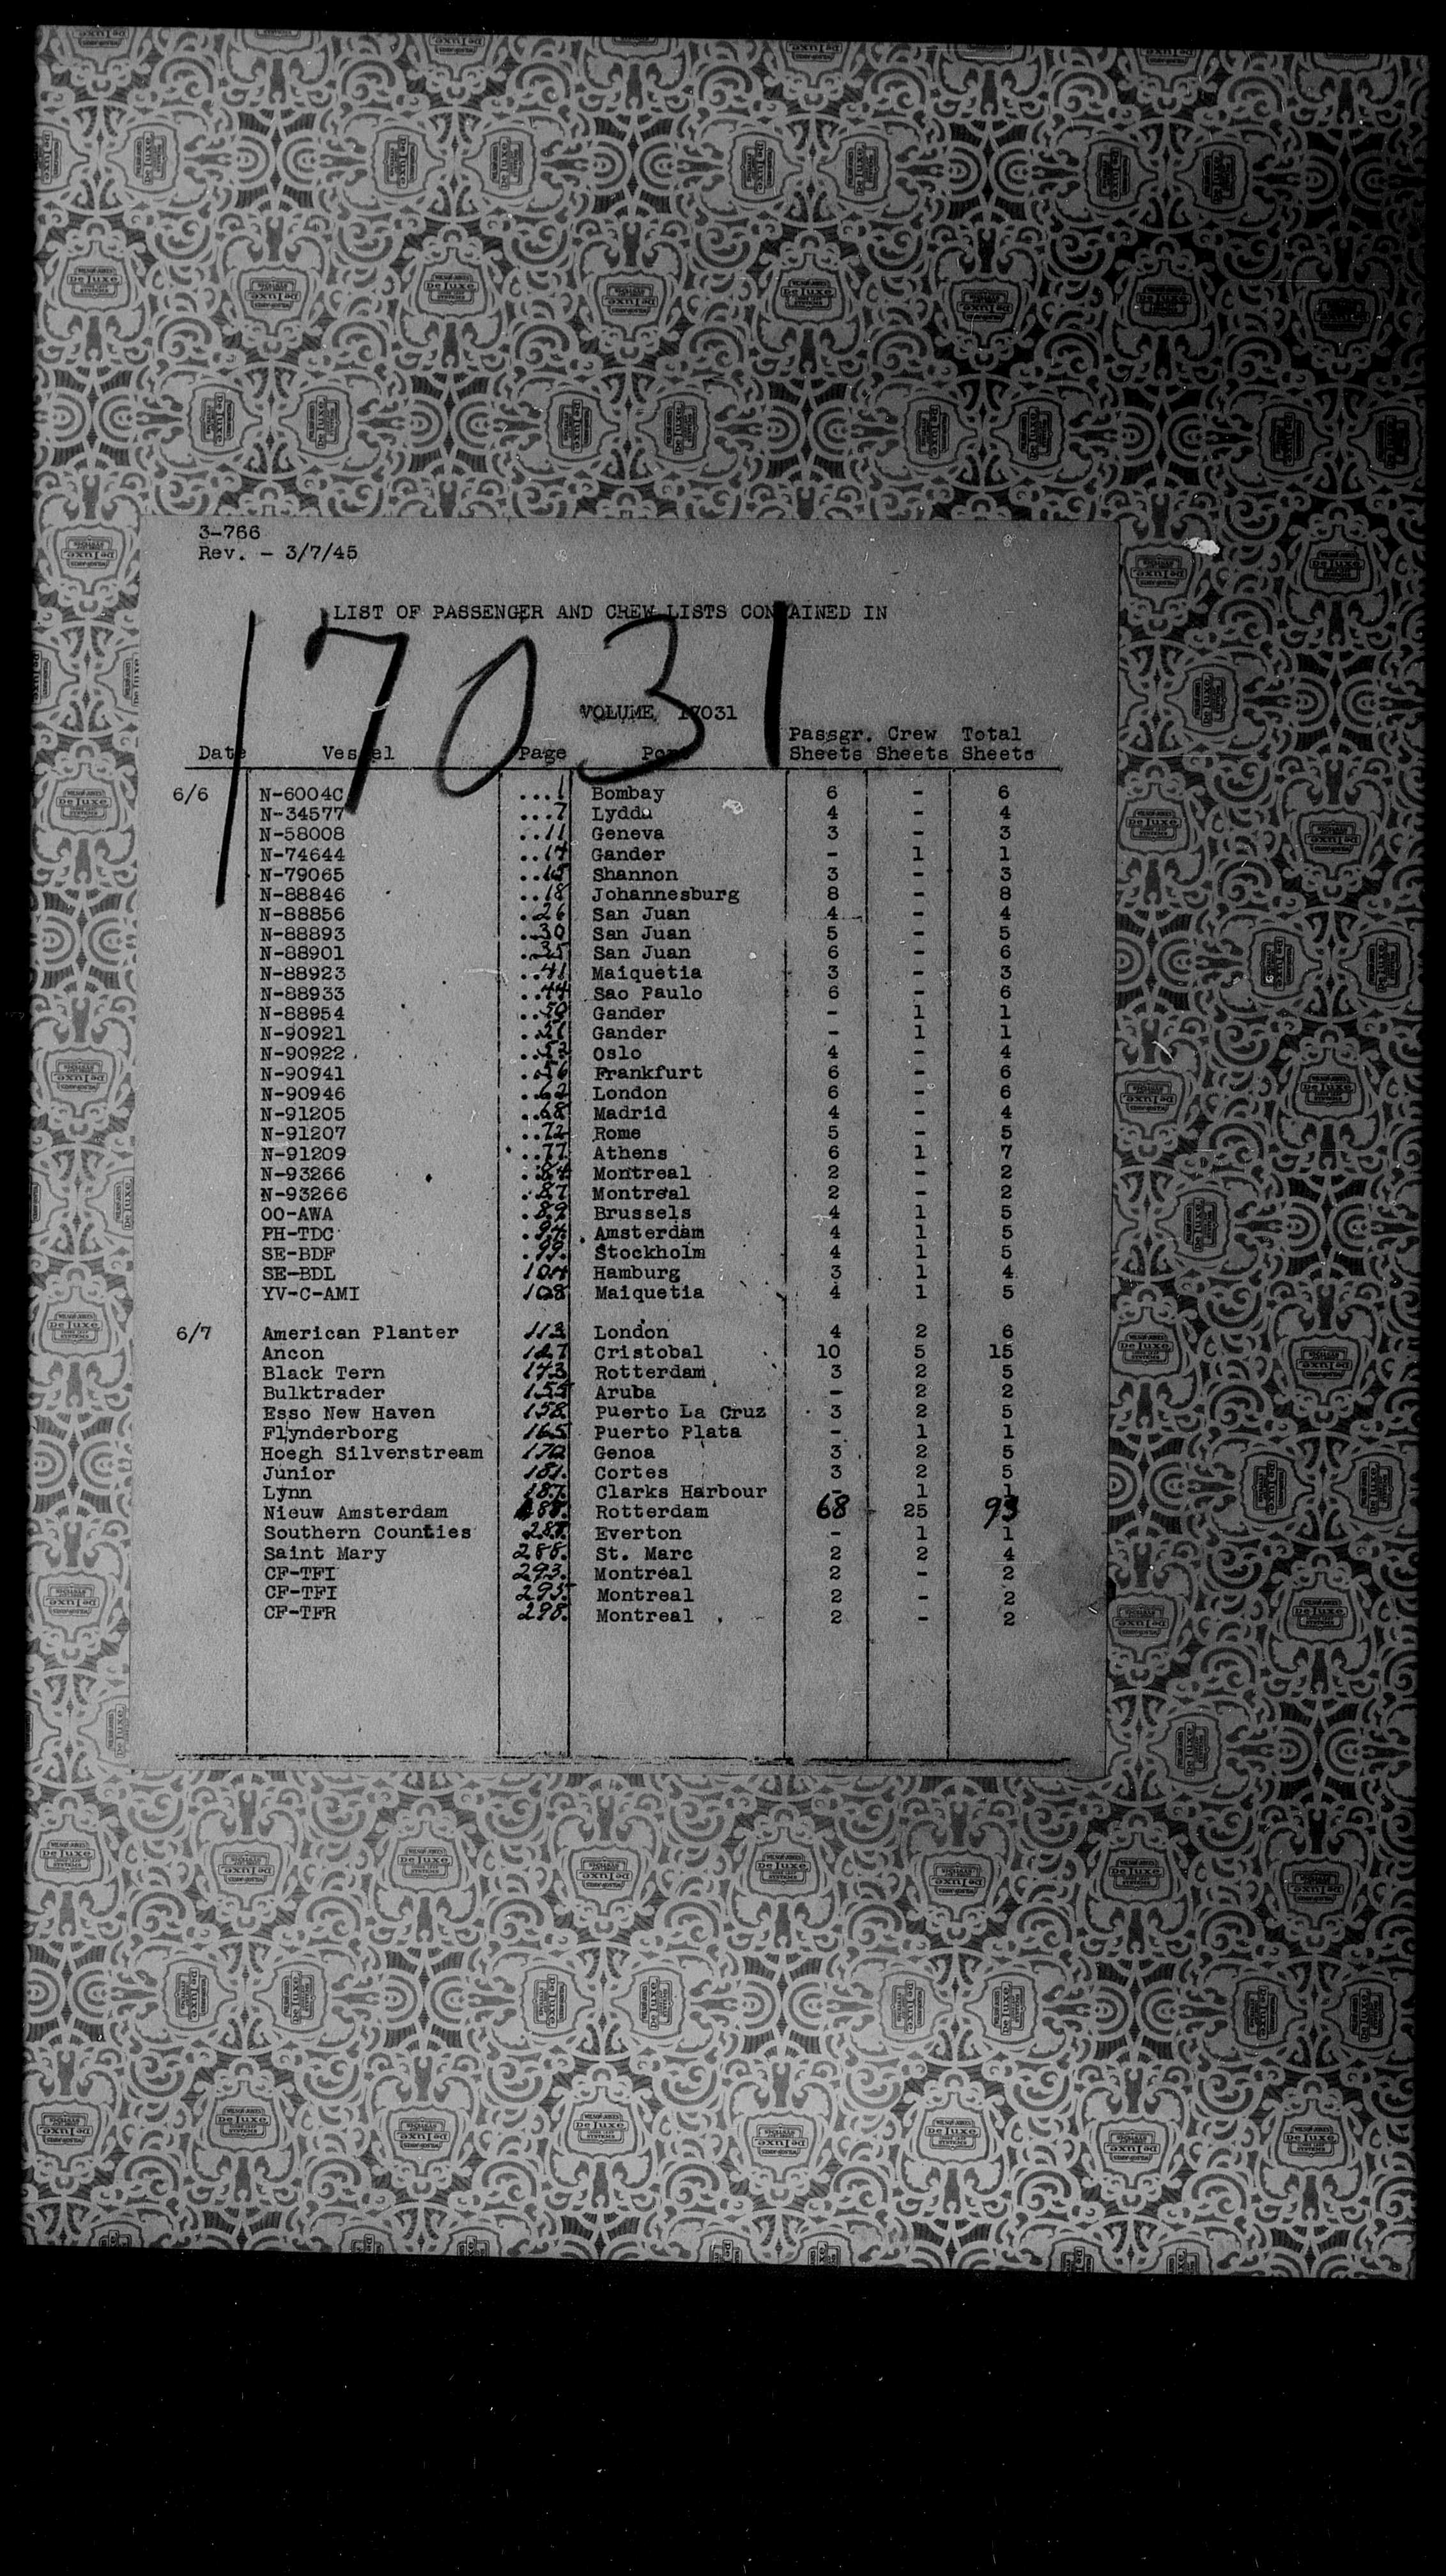 3-766
Rev. - 3/7/45
LIST OF PASSENGER AND CREW LISTS CONTAINED IN
17031
VOLUME 17031
Passgr. Crew Total
Date Vessel Page Port Sheets Sheets Sheets
6/6 N-6004C ...1 Bombay 6 - 6
N-34577 ...7 Lydda 4 - 4
N-58008 ..11 Geneva 3 - 3
N-74644 ..14 Gander - 1 1
N-79065 ..15 Shannon 3 - 3
N-88846 ..18 Johannesburg 8 - 8
N-88856 .26 San Juan 4 - 4
N-88893 ..30 San Juan 5 - 5
N-88901 ..35 San Juan 6 - 6
N-88923 ..41 Maiquetia 3 - 3
N-88933 ..44 Sao Paulo 6 - 6
N-88954 ..50 Gander - 1 1
N-90921 ..51 Gander - 1 1
N-90922 ..52 Oslo 4 - 4
N-90941 ..56 Frankfurt 6 - 6
N-90946 ..62 London 6 - 6
N-91205 ..68 Madrid 4 - 4
N-91207 ..72 Rome 5 - 5
N-91209 ..77 Athens 6 1 7
N-93266 .84 Montreal 2 - 2
N-93266 .87 Montreal 2 - 2
OO-AWA .89 Brussels 4 1 5
PH-TDC .94 Amsterdam 4 1 5
SE-BDF .99. Stockholm 4 1 5
SE-BDL 104 Hamburg 3 1 4
YV-C-AMI 108 Maiquetia 4 1 5
6/7 American Planter 113 London 4 2 6
Ancon 127 Cristobal 10 5 15
Black Tern 143 Rotterdam 3 2 5
Bulktrader 155 Aruba - 2 2
Esso New Haven 158 Puerto La Cruz 3 2 5
Flynderborg 165 Puerto Plata - 1 1
Hoegh Silverstream 172 Genoa 3 2 5
Junior 181. Cortes 3 2 5
Lynn 187. Clarks Harbour - 1 1
Nieuw Amsterdam 188. Rotterdam 68 25 93
Southern Counties 287. Everton - 1 1
Saint Mary 288. St. Marc 2 2 4
CF-TFI 293. Montreal 2 - 2
CF-TFI 295. Montreal 2 - 2
CF-TFR 298. Montreal 2 - 2